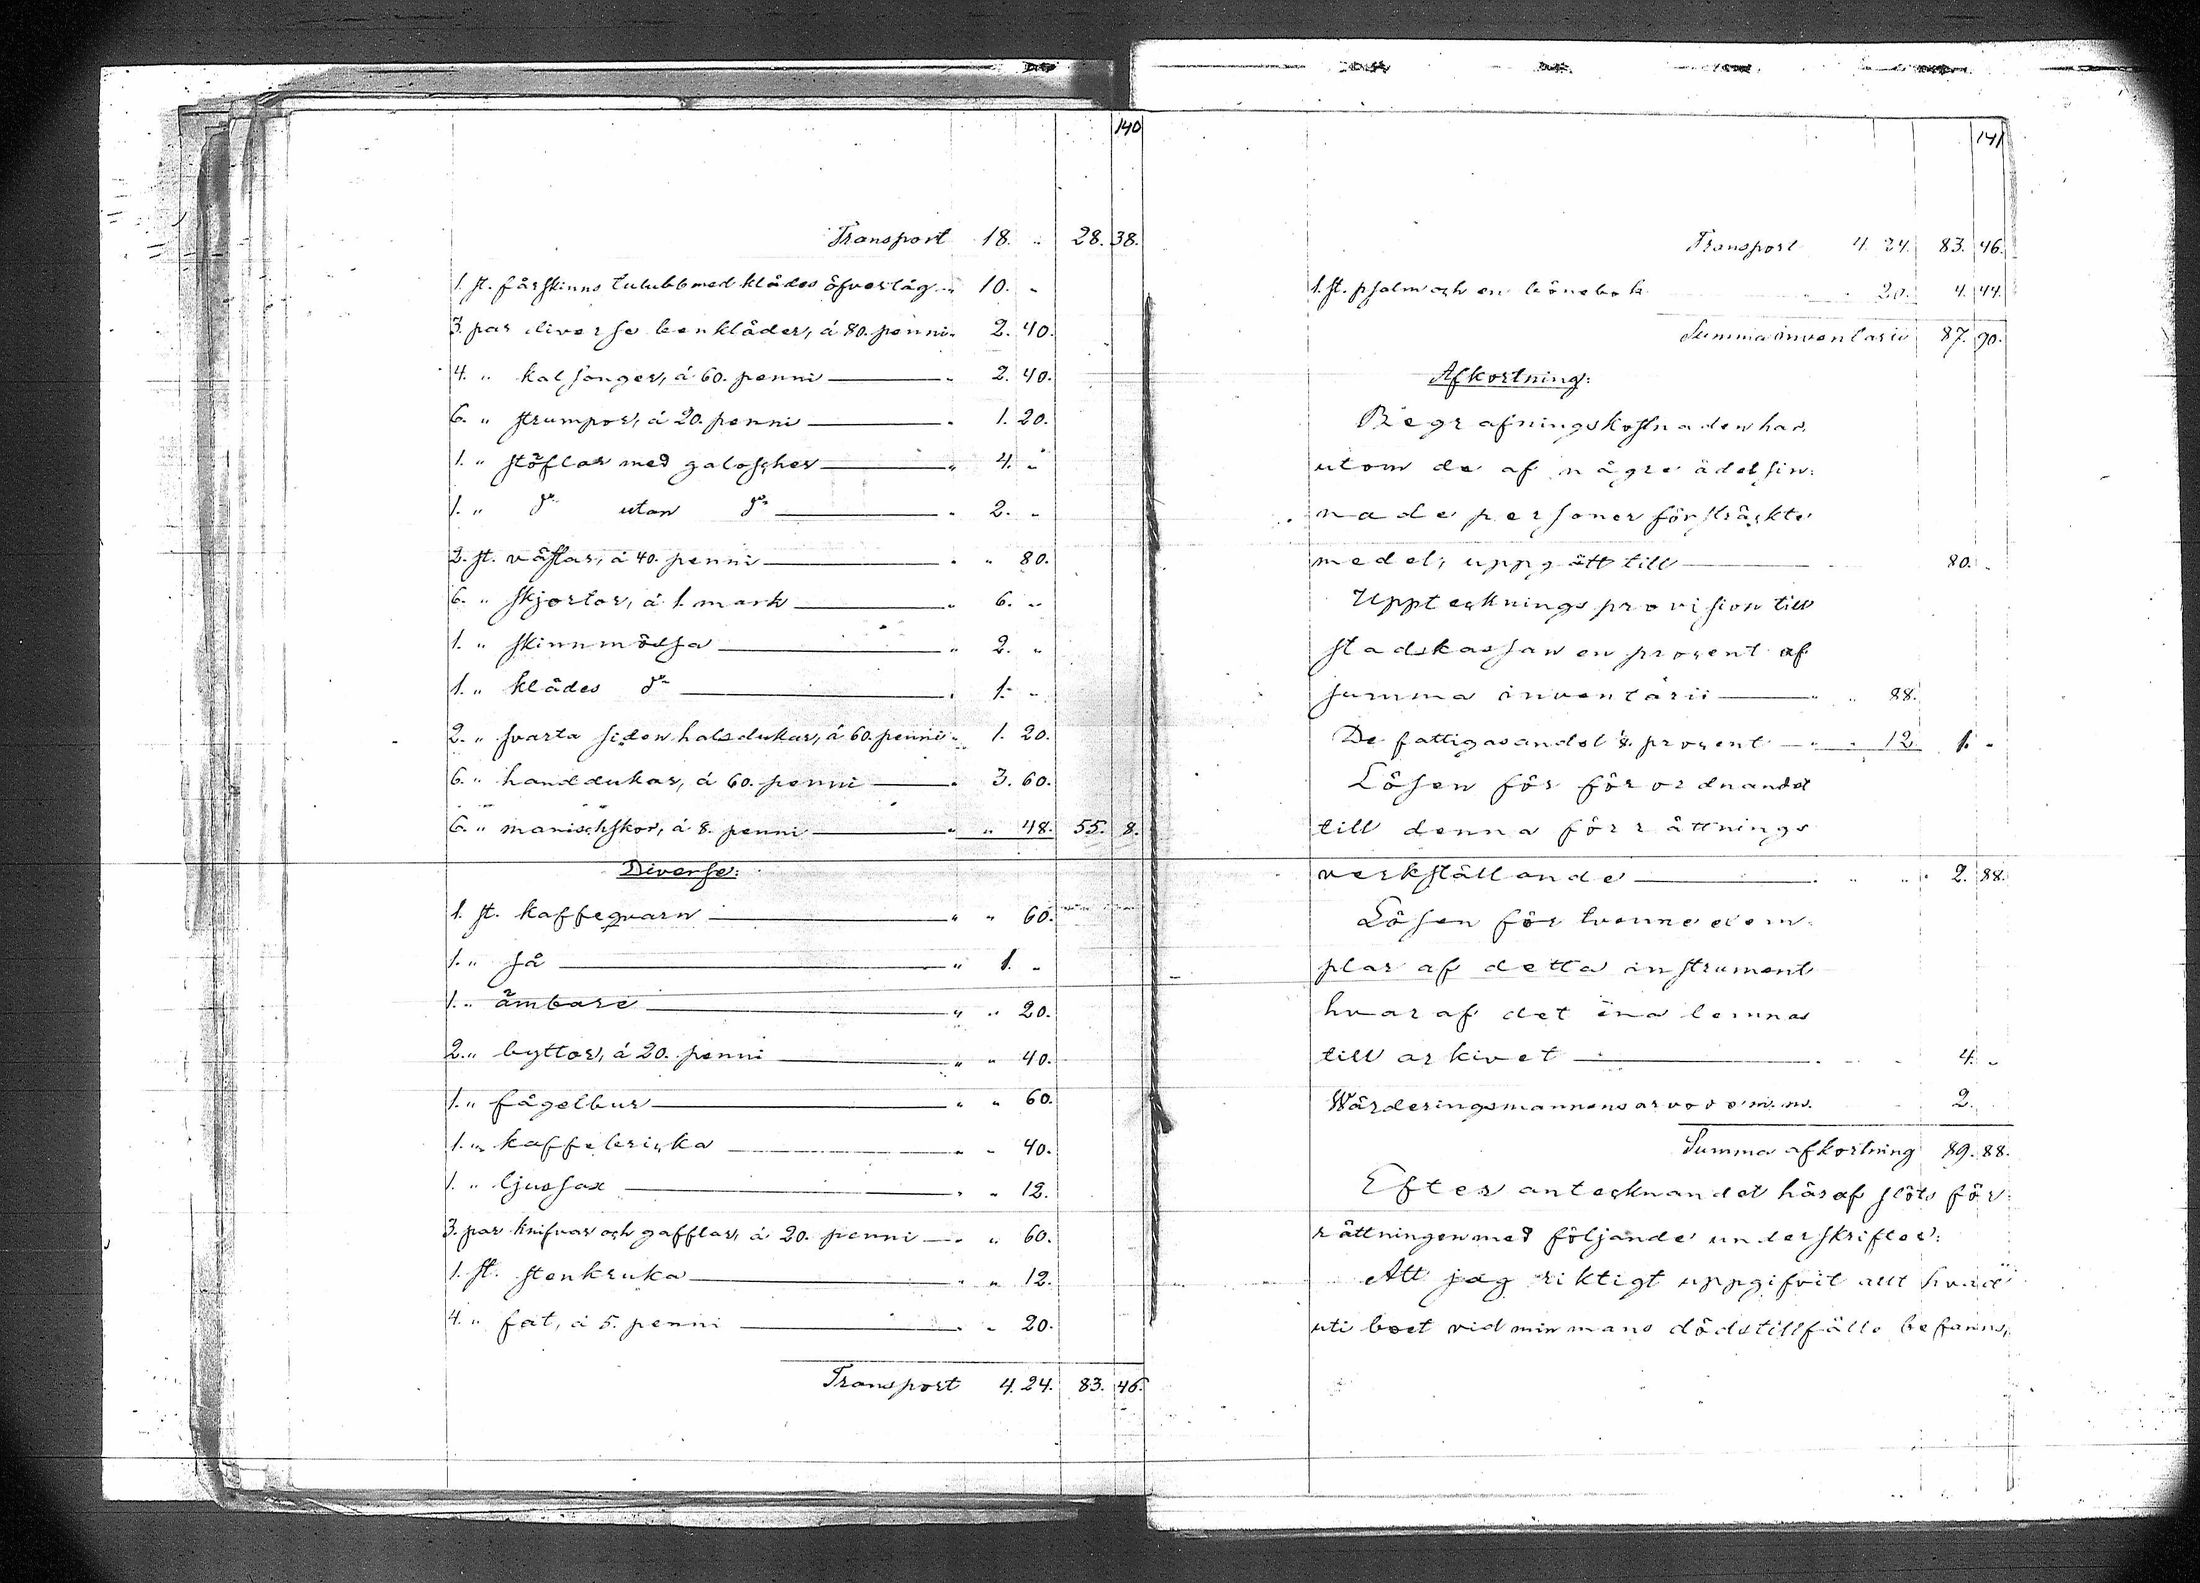 140
Transport 18. " 28. 38.
1. st. fårskinns tulubb med klädes öfvertåg " 10. "
3. par diverse benkläder, á 80. penni " 2. 40.
4. " kalsonger, á 60. penni " 2. 40.
6. " strumpor, á 20. penni " 1. 20.
1. " stöflar med galoscher " 4. "
1. " d:o utan d:o " 2. "
2. st. västar, á 40. penni " " 80.
6. " skjortor, á 1. mark " 6. "
1. " skinnmössa " 2. "
1. " klädes d:o " 1. "
2. " svarta siden halsdukar, á 60. penni " 1. 20.
6. " handdukar, á 60. penni " 3. 60.
6. " manischskor, á 8. penni " " 48. 55. 8.
Diverse:
1. st. kaffeqvarn " " 60.
1. " så " 1. "
1. " ämbare " " 20.
2. " byttor, á 20. penni " " 40.
1. " fågelbur " " 60.
1. " kaffebricka " " 40.
1. " ljussax " " 12.
3. par knifvar och gafflar, á 20. penni " " 60.
1. st. stenkruka " " 12.
4. " fat, á 5. penni " " 20.
Transport 4. 24. 83. 46.
141
Transport 4. 24. 83. 46.
1. st. psalm och en bönebok " " 20. 4. 44.
Summa inventarii 87. 90.
Afkortning:
Begrafningskostnaden har,
utom de af någre ädelsin-
nade personer försträckte
medel, uppgått till 80. "
Uppteckningsprovision till
stadskassan en procent af
summa inventarii " " 88.
De fattigas andel ⅛ procent " " 12. 1. "
Lösen för förordnandet
till denna förrättnings
verkställande " " 2. 88.
Lösen för tvenne exem-
plar af detta instrument
hvaraf det ena lemnas
till arkivet " " 4. "
Wärderingsmannens arvode m.m. 2.
Summa afkortning 89. 88.
Efter antecknandet häraf slöts för-
rättningen med följande underskrifter:
Att jag riktigt uppgifvit allt hvad
uti boet vid min mans dödstillfälle befanns,